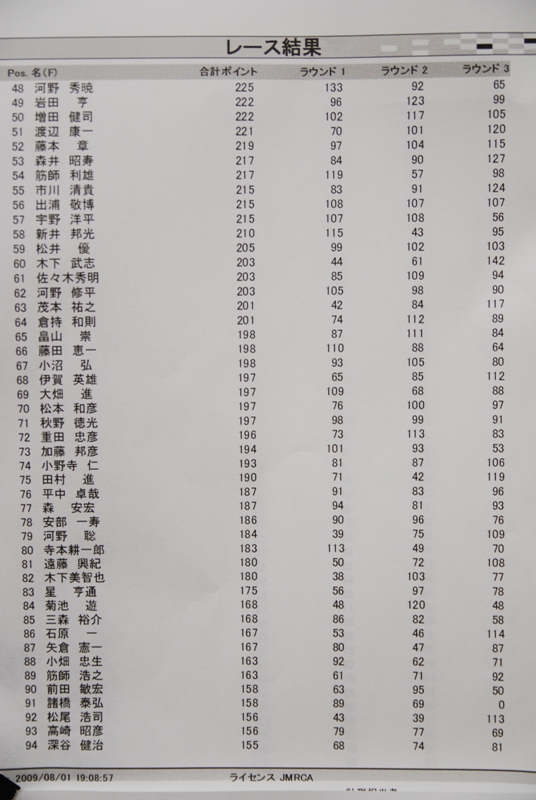 レース結果
Pos. 名(F) 合計ポイント ラウンド 1 ラウンド 2 ラウンド 3
48 河野 秀暁 225 133 92 65
49 岩田 亨 222 96 123 99
50 増田 健司 222 102 117 105
51 渡辺 康一 221 70 101 120
52 藤本 章 219 97 104 115
53 森井 昭寿 217 84 90 127
54 筋師 利雄 217 119 57 98
55 市川 清貴 215 83 91 124
56 出浦 敬博 215 108 107 107
57 宇野 洋平 215 107 108 56
58 新井 邦光 210 115 43 95
59 松井 優 205 99 102 103
60 木下 武志 203 44 61 142
61 佐々木秀明 203 85 109 94
62 河野 修平 203 105 98 90
63 茂本 祐之 201 42 84 117
64 倉持 和則 201 74 112 89
65 畠山 崇 198 87 111 84
66 藤田 恵一 198 110 88 64
67 小沼 弘 198 93 105 80
68 伊賀 英雄 197 65 85 112
69 大畑 進 197 109 68 88
70 松本 和彦 197 76 100 97
71 秋野 徳光 197 98 99 91
72 重田 忠彦 196 73 113 83
73 加藤 邦彦 194 101 93 53
74 小野寺 仁 193 81 87 106
75 田村 進 190 71 42 119
76 平中 卓哉 187 91 83 96
77 森 安宏 187 94 81 93
78 安部 一寿 186 90 96 76
79 河野 聡 184 39 75 109
80 寺本耕一郎 183 113 49 70
81 遠藤 興紀 180 50 72 108
82 木下美智也 180 38 103 77
83 星 亨通 175 56 97 78
84 菊池 遊 168 48 120 48
85 三森 裕介 168 86 82 58
86 石原 一 167 53 46 114
87 矢倉 憲一 167 80 47 87
88 小畑 忠生 163 92 62 71
89 筋師 浩之 163 61 71 92
90 前田 敏宏 158 63 95 50
91 諸橋 泰弘 158 89 69 0
92 松尾 浩司 156 43 39 113
93 高崎 昭彦 156 79 77 69
94 深谷 健治 155 68 74 81
2009/08/01 19:08:57 ライセンス JMRCA